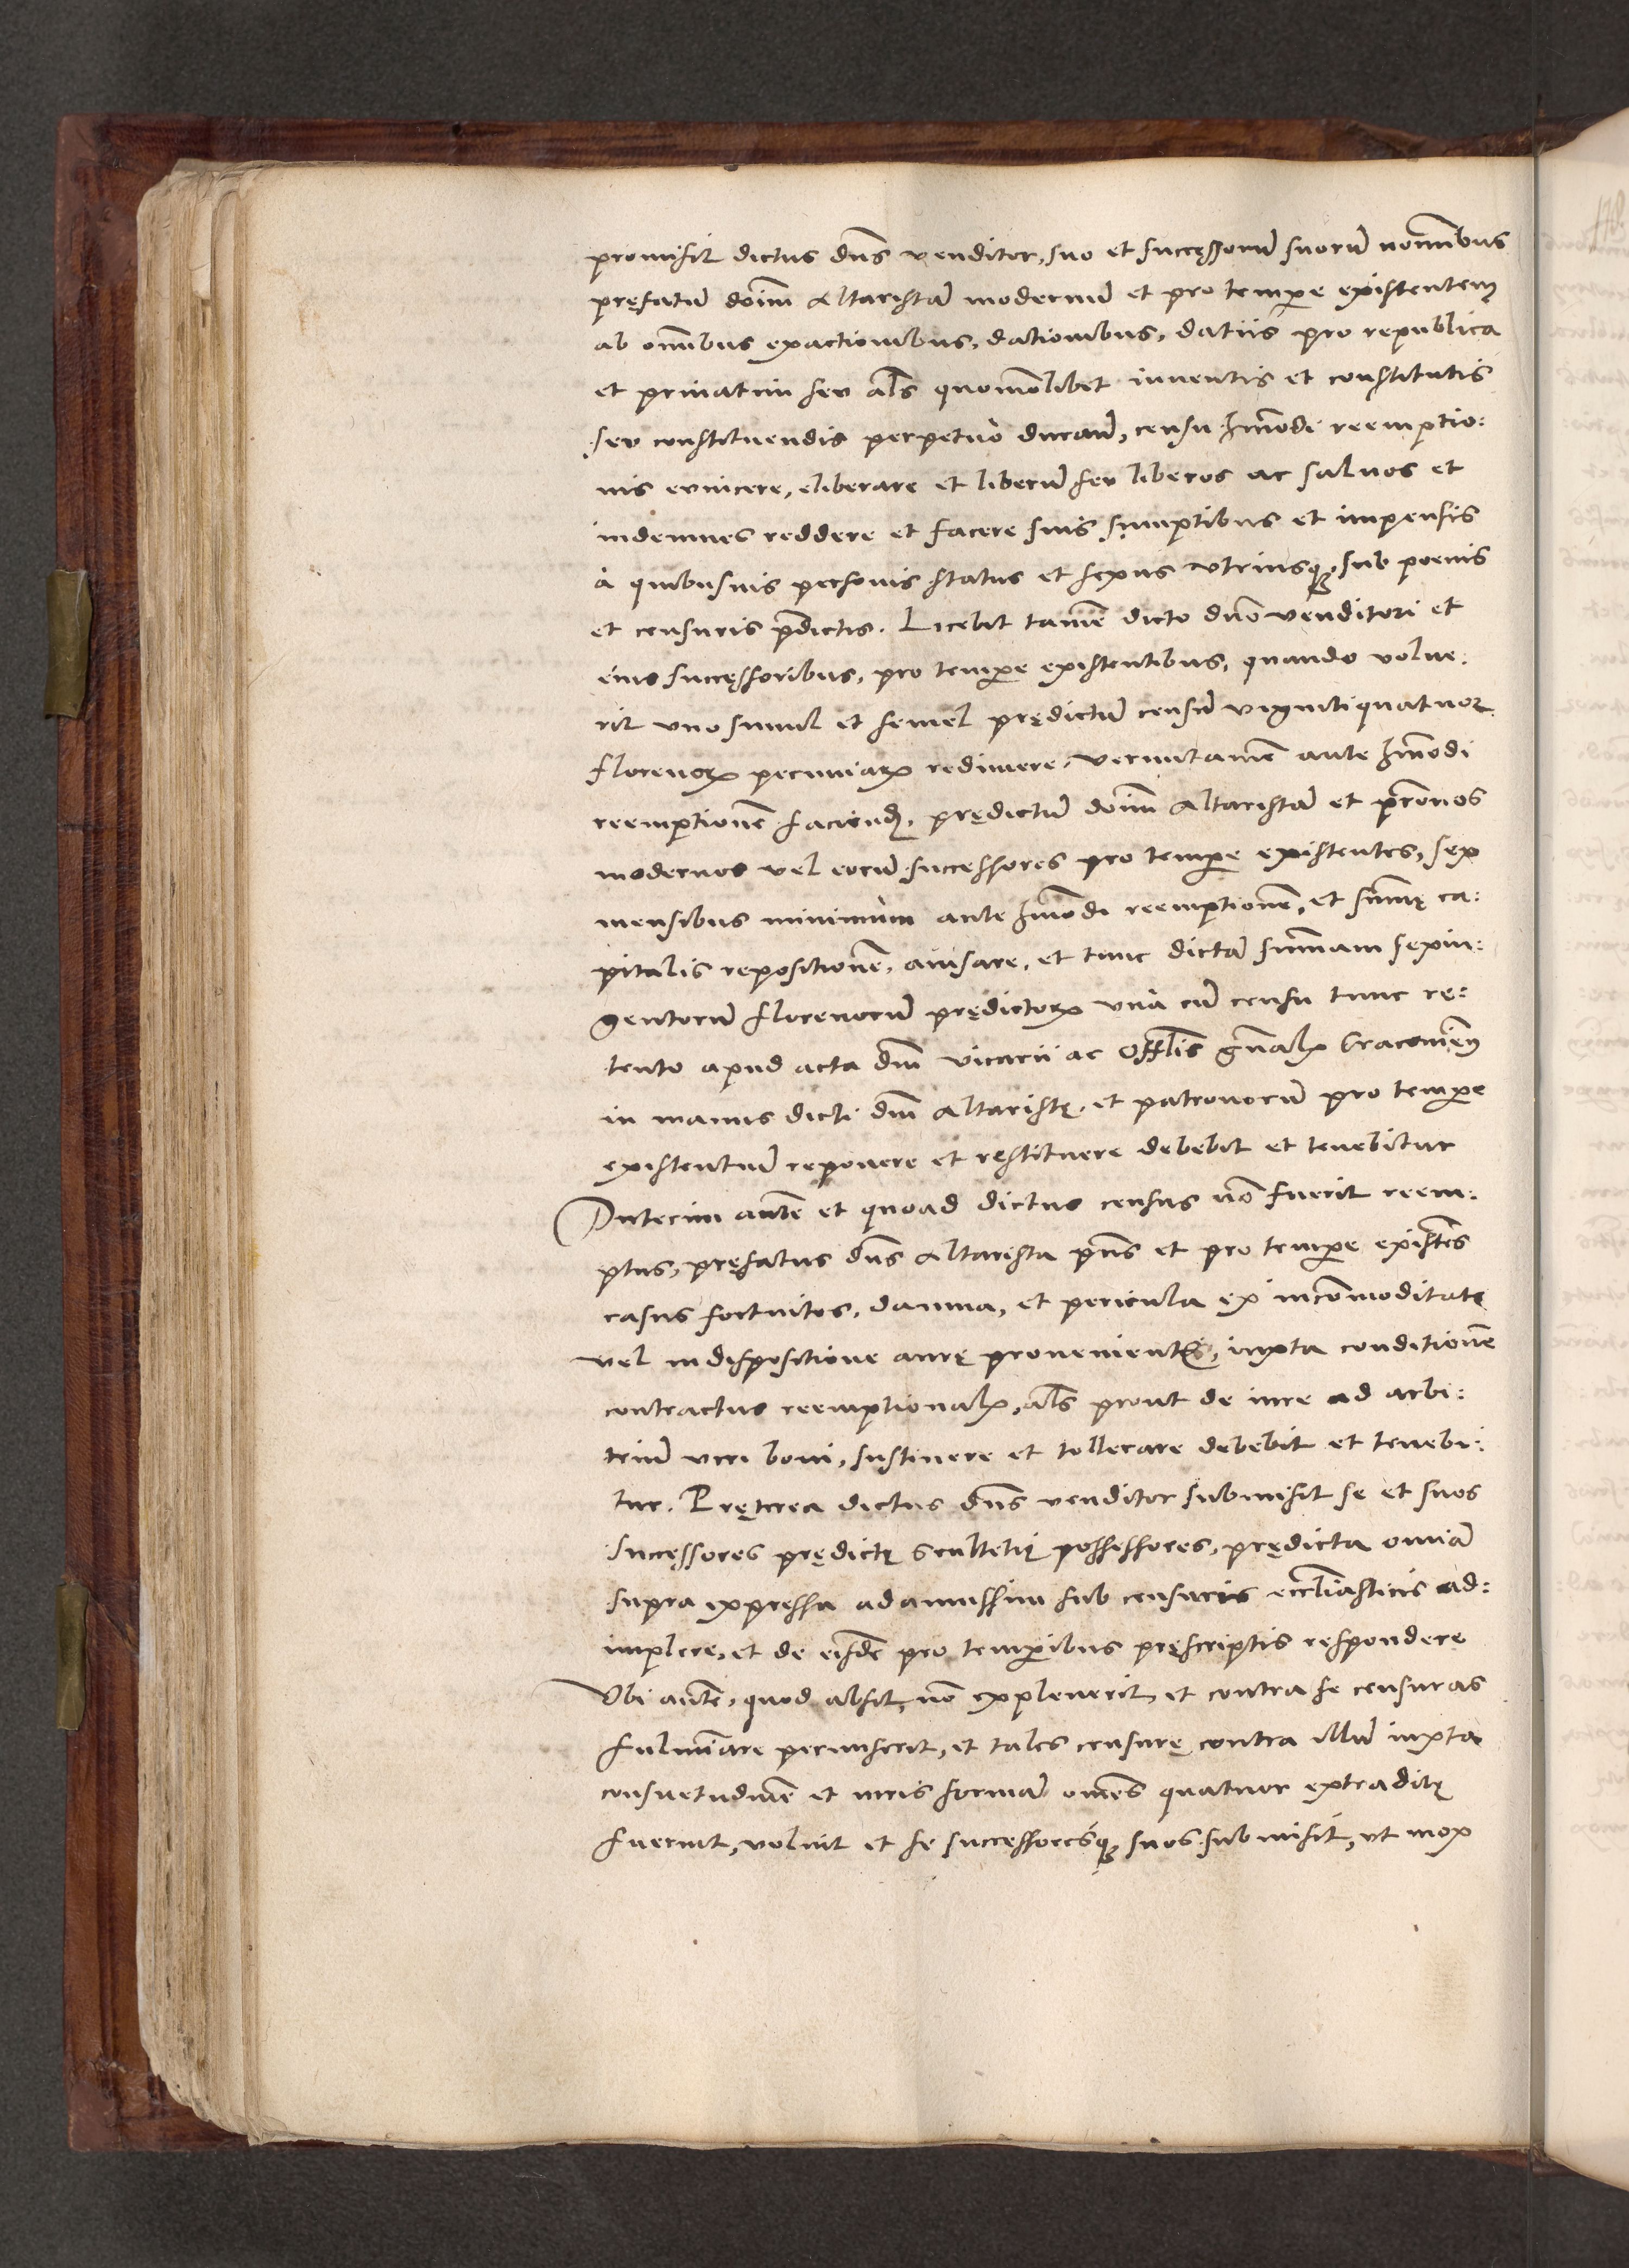 promisit dictus dns̄ venditor, suo et successorū suorū noībus
pręfatū doīm Altaristā modernū et pro tempe existentem
ab oībus exactionibus, dationibus, datiis pro republica
et priuatim seu als̄ quomōlibet inuentis et constitutis
seu constituendis perpetuo duraū, censu hmōdi reemptio:
nis euincere, eliberare et liberū seu liberos ac saluos et
indemnes reddere et facere suis sumptibus et impensis
à quibusuis personis status et sexus vtriusq; sub poenis
et censuris p̄dictis. Licebit tamē dicto dn̄o venditori et
eius successoribus, pro tempe existentibus, quando volue:
rit vno simul et semel prędictū censū vigintiquatuor
florenoꝝ pecuniaꝝ redimere, veruntamē ante hmōdi
reemptionē faciend, prędictū doīm Altaristā et pr̄onos
modernos vel eorū successores pro tempe existentes, sex
mensibus minimum ante hmōdi reemptionē, et sum̄ę ca:
pitalis repositionē, auisare, et tunc dictā sum̄am sexin:
gentorū florenorū prędictoꝝ vnà cū censu tunc rę:
tento apud acta dn̄i vicarii ac Offlis gn̄alꝭ Cracouień
in manus dicti dn̄i Altaristę et patronorū pro tempe
existentiū reponere et restituere debebit et tenebitur
Interim autē et quoad dictus census nō fuerit reem:
ptus, pręfatus dns̄ Altarista pn̄s et pro tempe existēs
casus fortuitos, damna, et pericula ex incōmoditatę
vel indispositione aurę prouenientia, iuxta conditionē
contractus reemptionalꝭ, als̄ prout de iure ad arbi:
triū viri boni, sustinere et tollerare debebit et tenebi:
tur. Pręterea dictus dns̄ venditor submisit se et suos
successores prędictę scultetię possessores, prędicta omīa
supra expressa adamussim sub censuris eccl̄iasticis ad:
implere, et de eisdē pro tempibus pręscriptis respondere
Vbi autē, quod absit, nō expleuerit, et contra se censuras
fulmīare permiserit, et tales censurę contra illū iuxta
consuetudinē et iuris formā oīnes quatuor extraditę
fuerint, voluit et se successoresq; suos submisit, vt mox